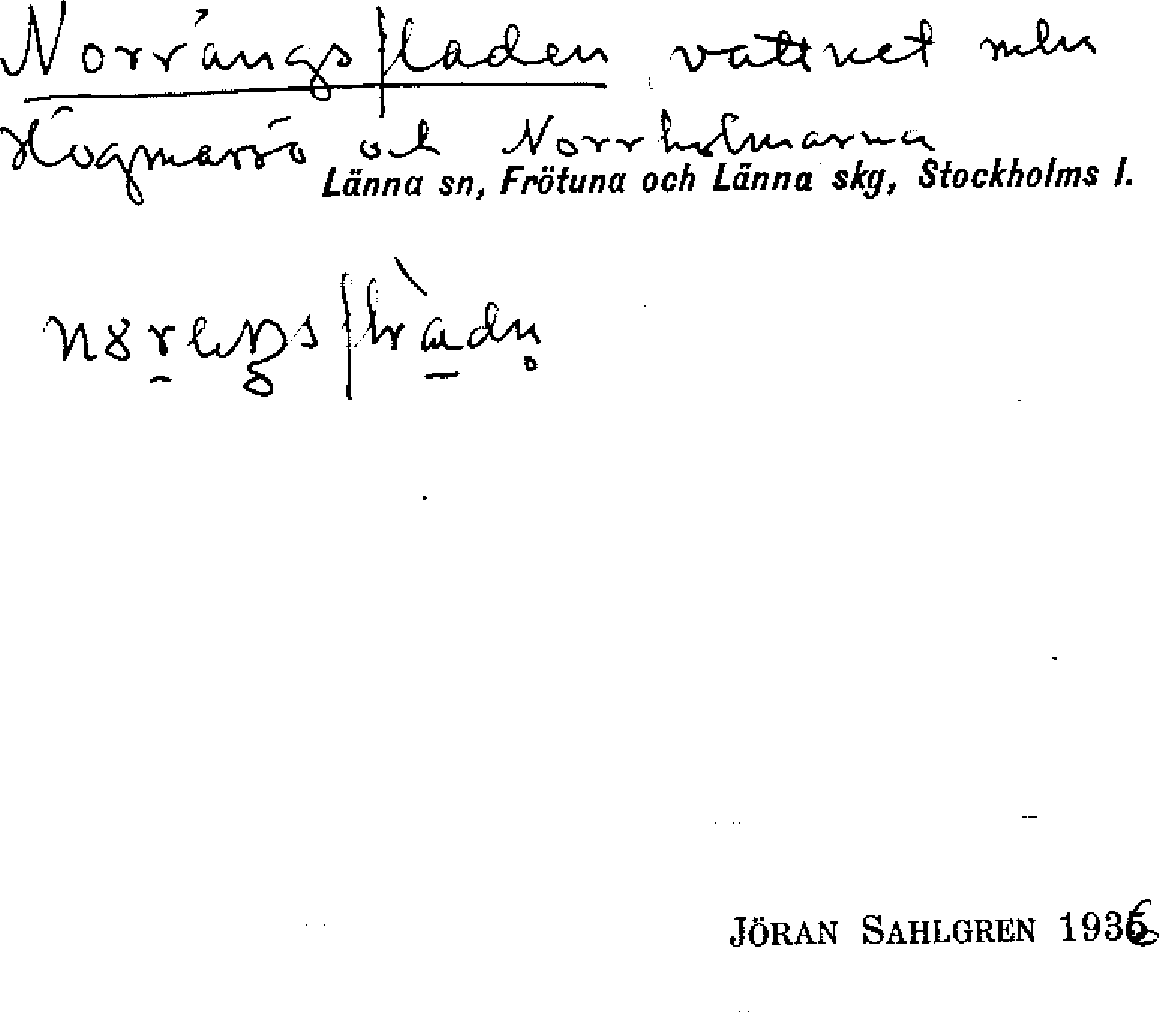 Norrängsfladen vattnet mln
Högmarsö och Norrholmarna
Länna sn, Frötuna och Länna skg, Stockholms l.
JÖRAN SAHLGREN 1936